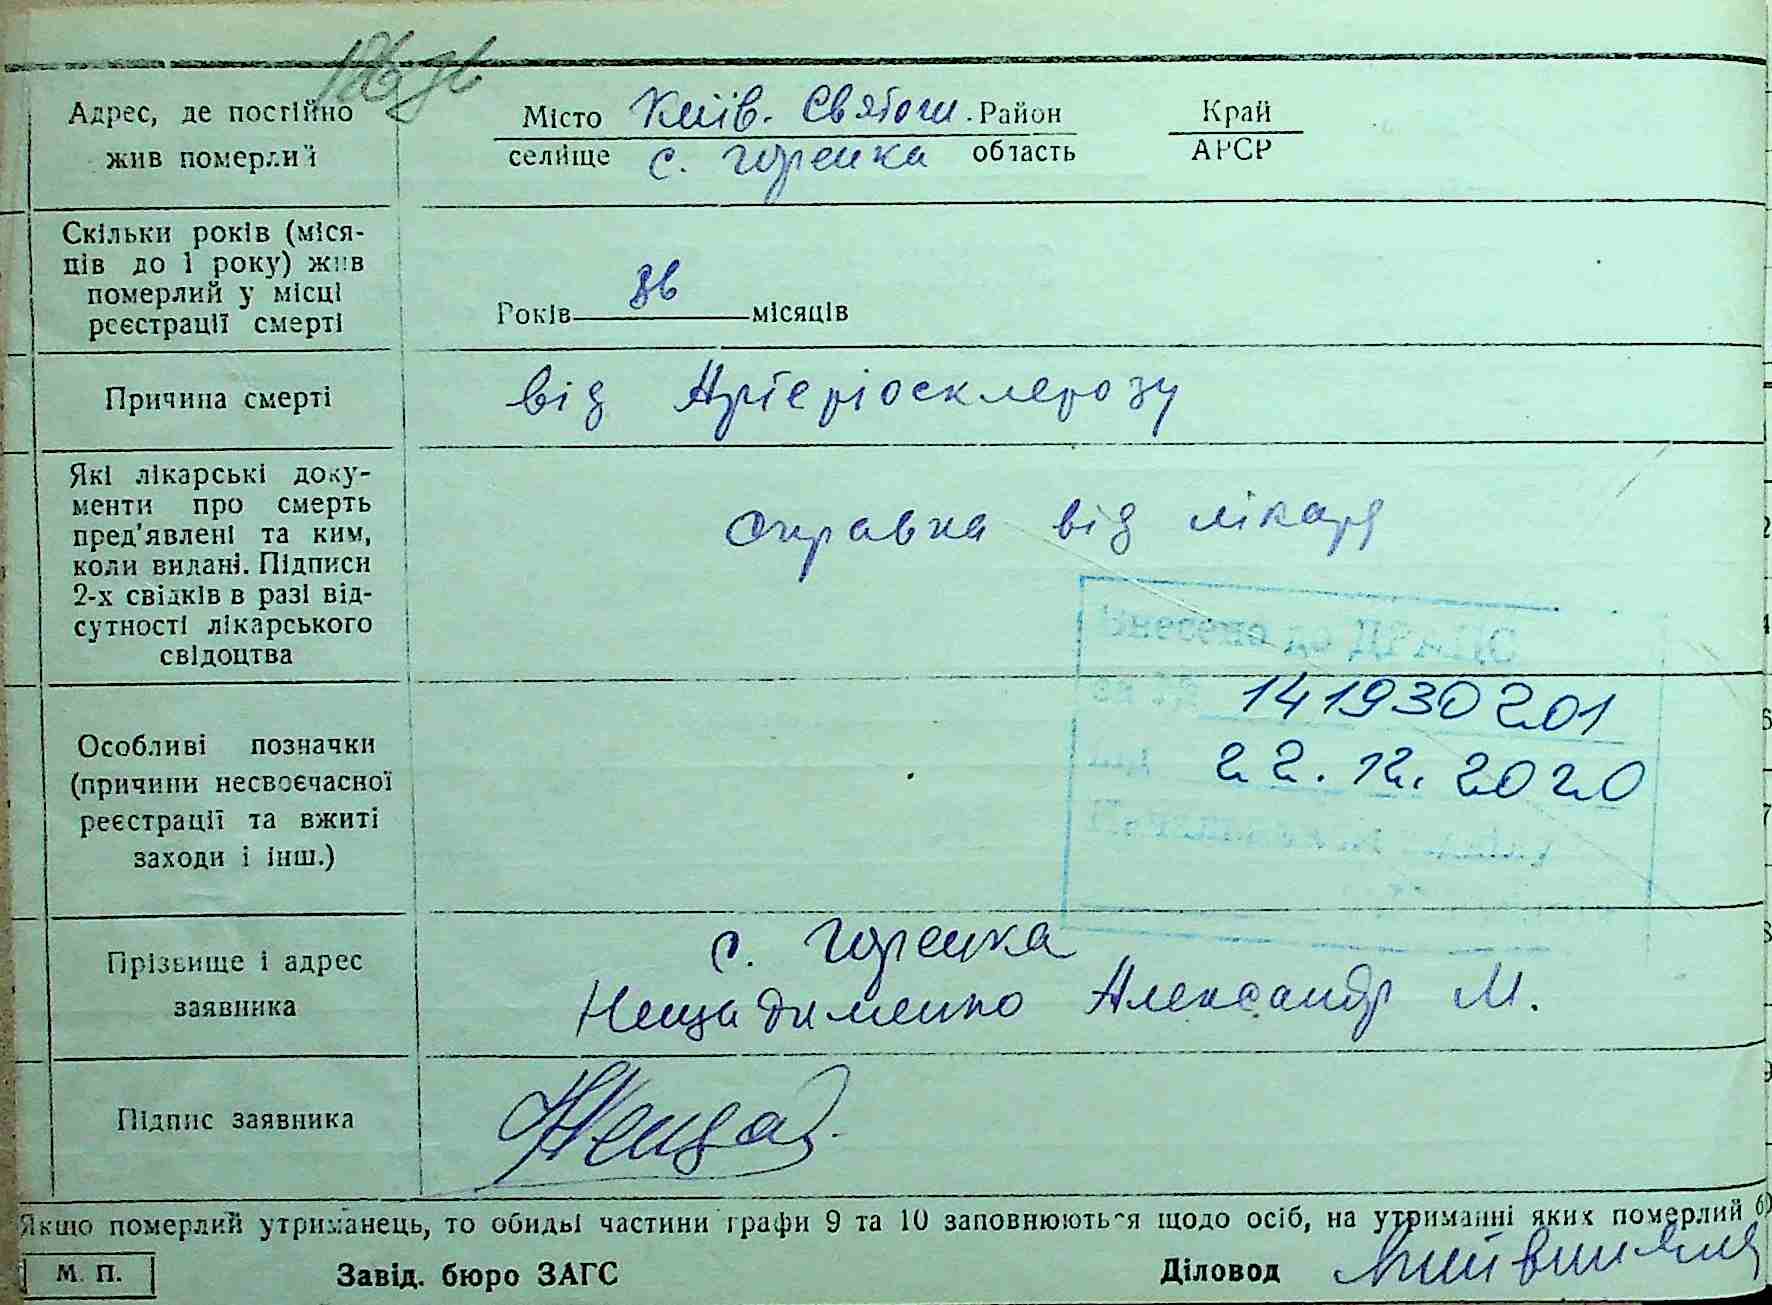 Адрес, де постійно жив померлий
Місто Київ. Святош. Район Край
селище с. Горенка область АРСР
Скільки років (міся-
ців до 1 року) жив
померлий у місці
реєстрації смерті
Років 86 місяців
Причина смерті
від Артеріосклерозу
Які лікарські доку-
менти про смерть
пред'явлені та ким,
коли видані. Підписи
2-х свідків в разі від-
сутності лікарського
свідоцтва
справка від лікаря
Внесено до ДРАЦС
за № 141930201
дні 22.12.2020
Особливі позначки
(причини несвоєчасної
реєстрації та вжиті
заходи і інш.)
Прізвище і адрес
заявника
с. Горенка
Нещадименко Александр М.
Підпис заявника
Нещад
Якщо померлий утриманець, то обидві частини графи 9 та 10 заповнюються щодо осіб, на утриманні яких померлий
М. П.
Завід. бюро ЗАГС
Діловод